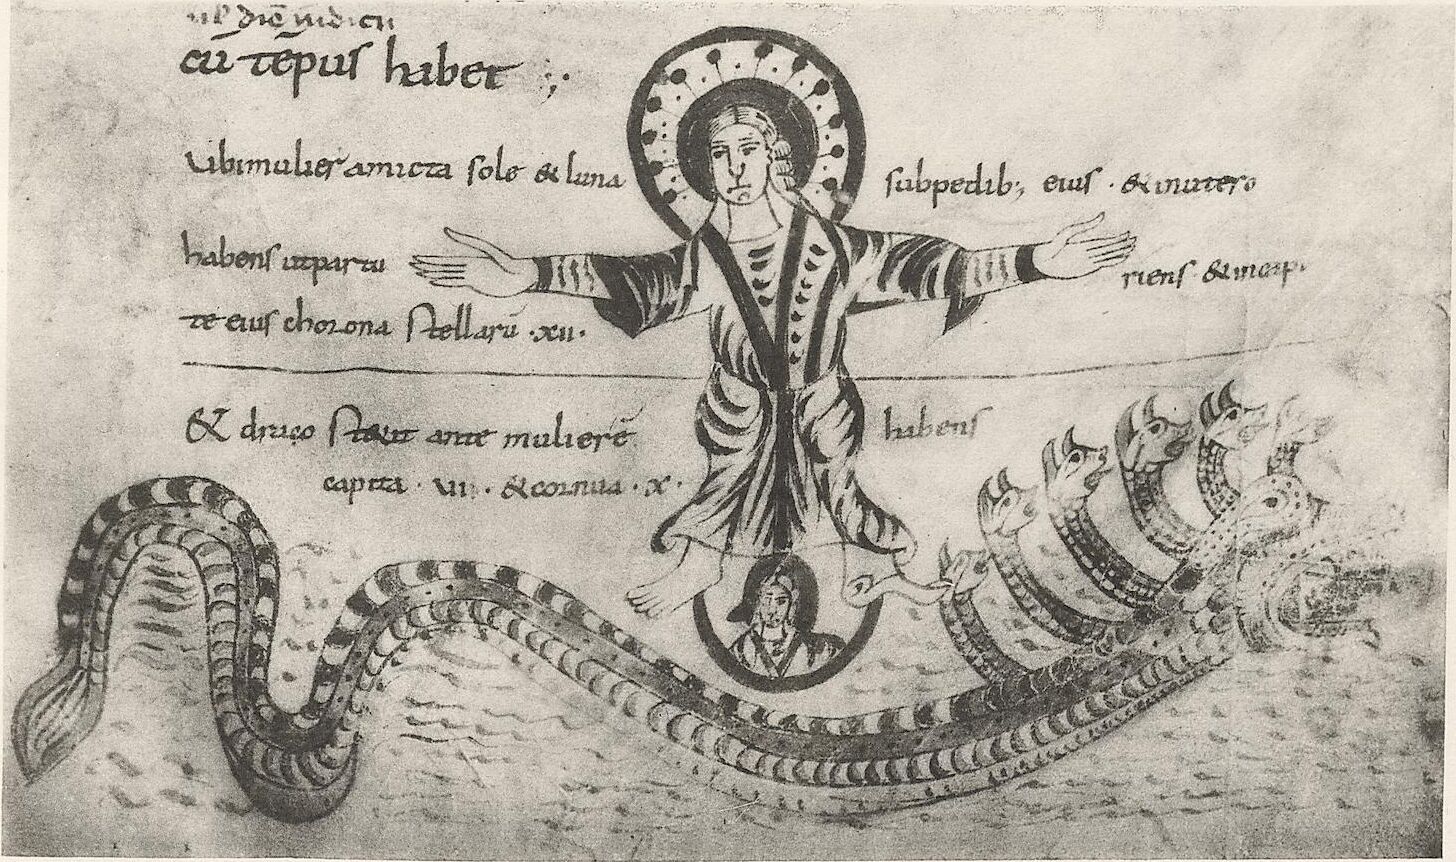 sub diē iudicii
cū tēpus habet ;
Ubi mulier amicta sole & luna sub pedib; eius · & in utero
habens ut partu riens & in capi
te eius chorona stellarū · xii ·
& draco stetit ante mulierē habens
capita · vii · & cornua · x ·